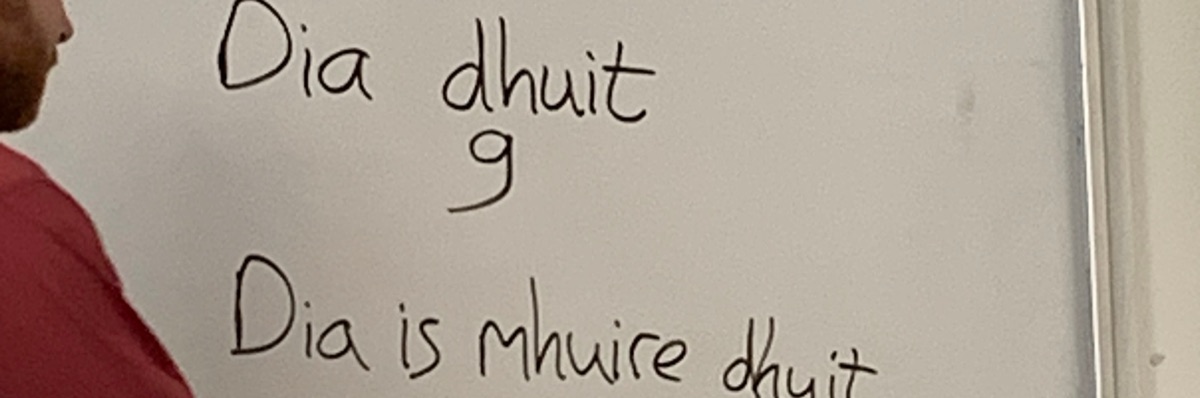 Dia dhuit
g
Dia is mhuire dhuit